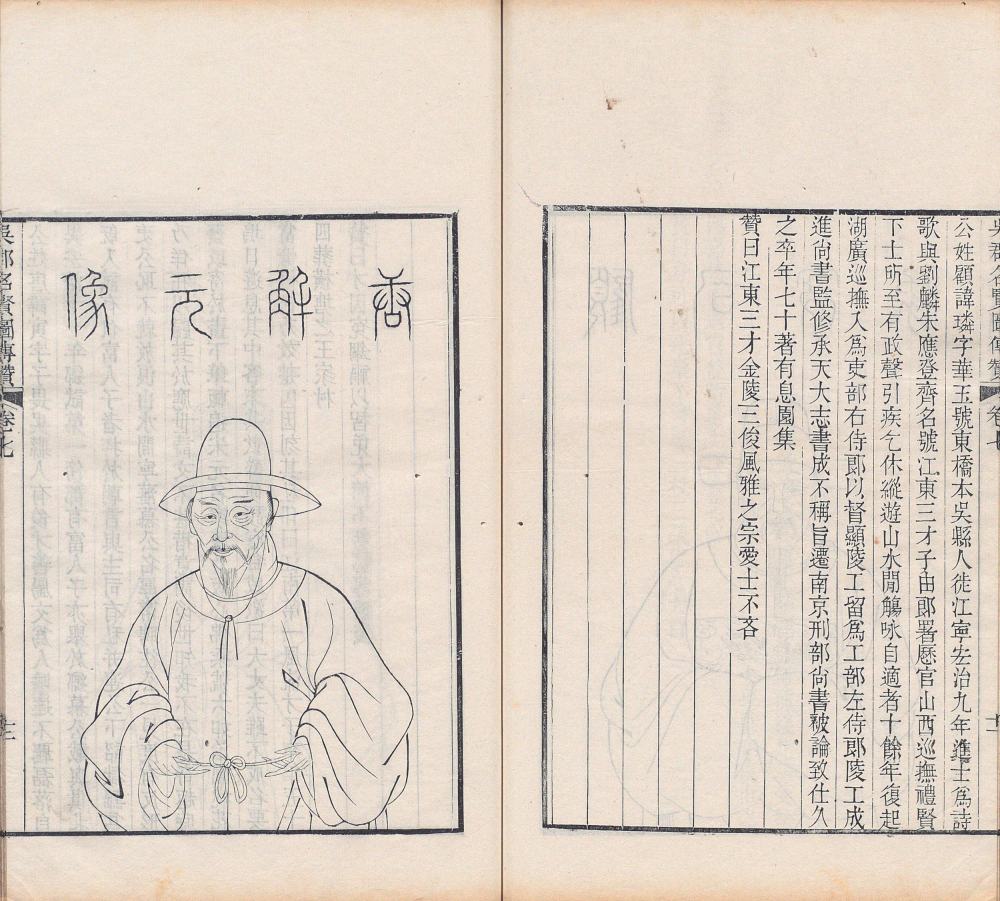 吳郡名賢圖傳贊 卷七
公姓顧諱璘字華玉號東橋本吳縣人徙江寧宏治九年進士為詩
歌與劉麟朱應登齊名號江東三才子由郎署歷官山西巡撫禮賢
下士所至有政聲引疾乞休縱遊山水間觴咏自適者十餘年復起
湖廣巡撫入為吏部右侍郎以督顯陵工留為工部左侍郎陵工成
進尚書監修承天大志書成不稱旨遷南京刑部尚書被論致仕久
之卒年七十著有息園集
贊曰江東三才金陵三俊風雅之宗愛士不吝
唐解元像
吳郡名賢圖傳贊 卷七